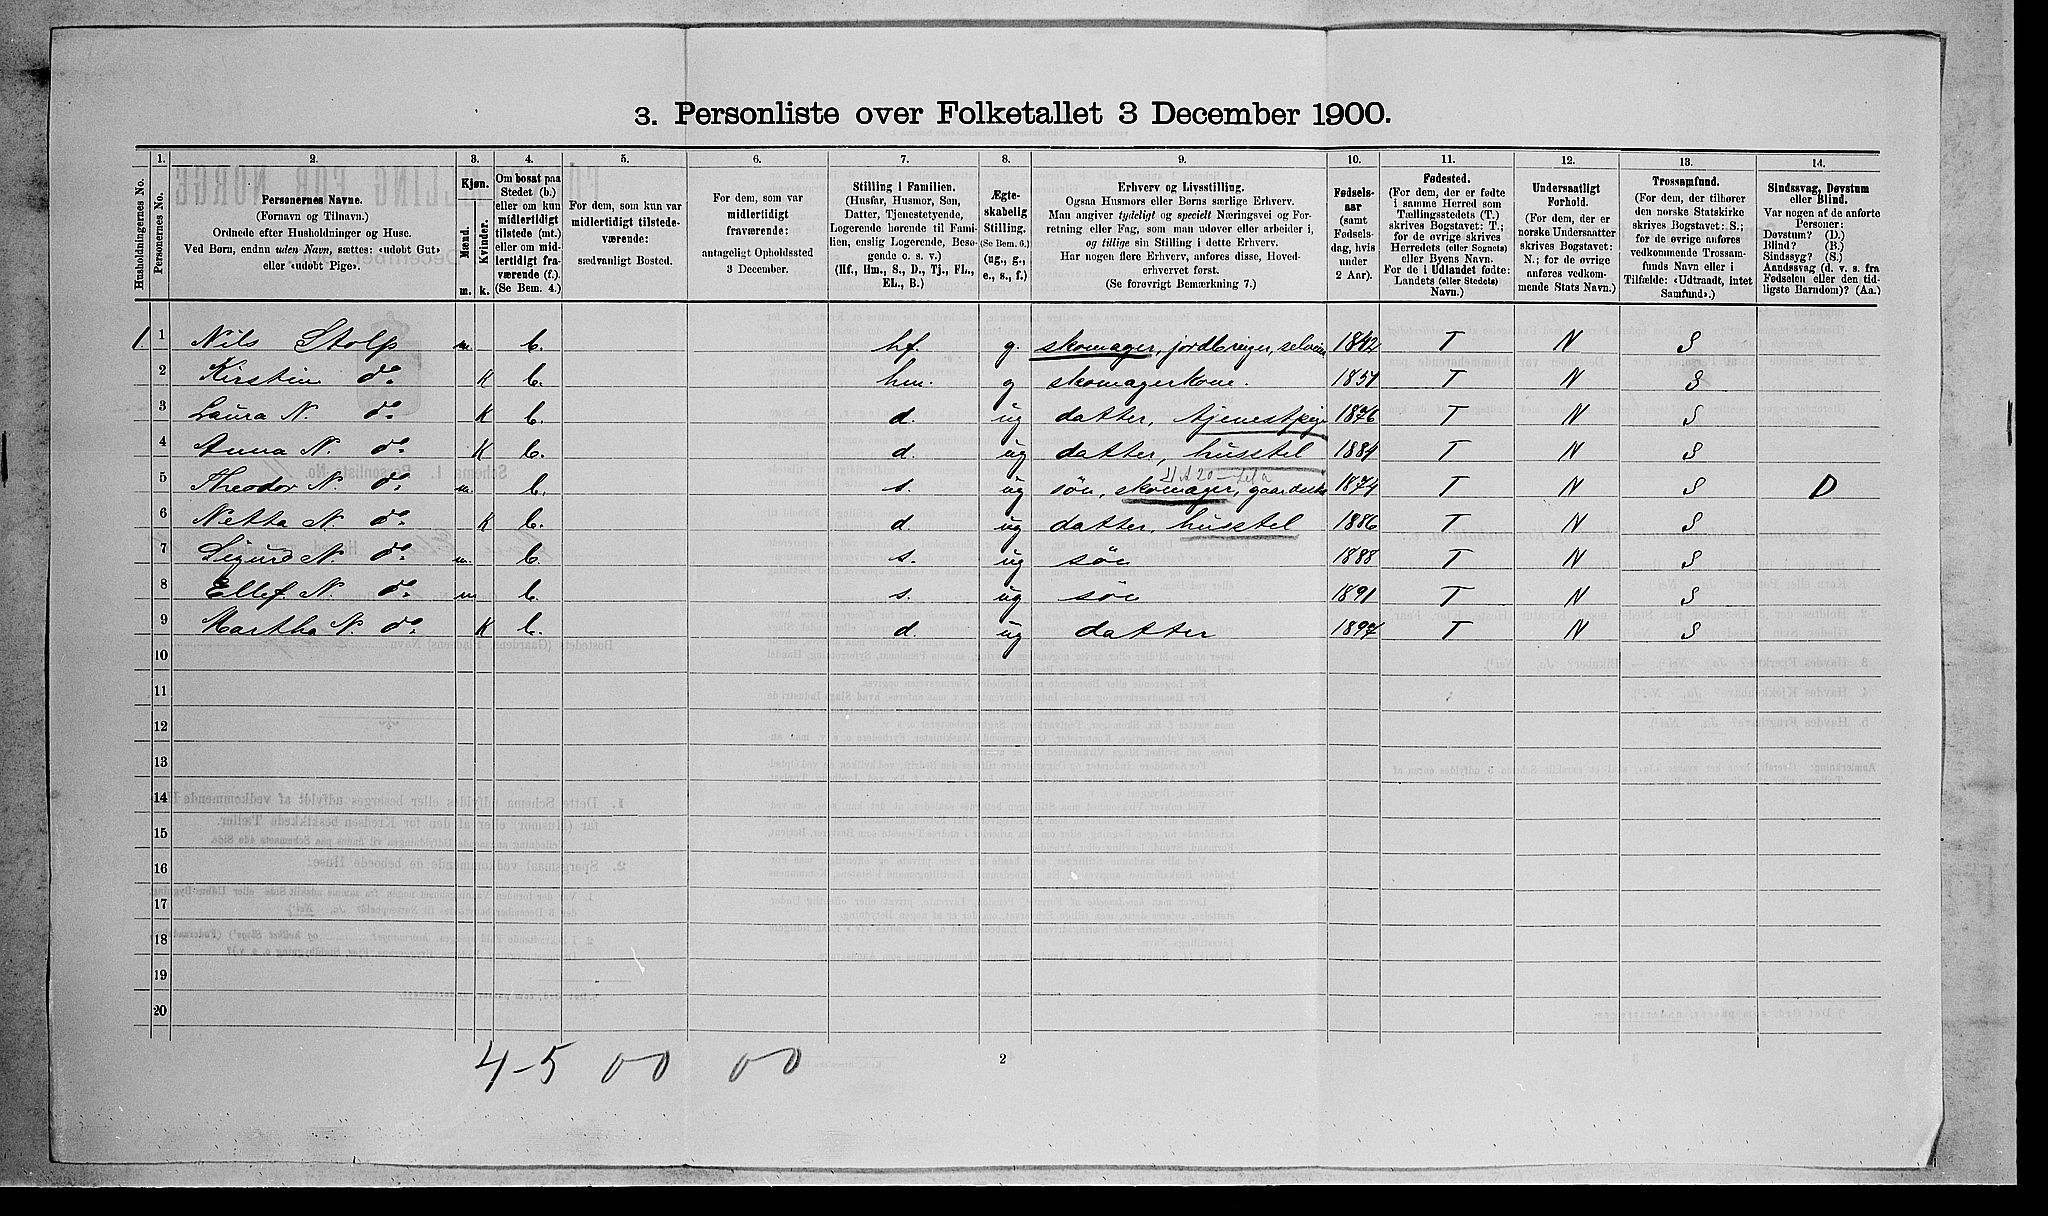 3. Personliste over Folketallet 3 December 1900.
Husholdningernes No.
1.
Personernes No.
2.
Personernes Navne.
(Fornavn og Tilnavn.)
Ordnede efter Husholdninger og Huse.
Ved Børn, endnu uden Navn, sættes: «udøbt Gut»
eller «udøbt Pige».
3.
Kjøn.
Mænd.
Kvinder.
m. k.
4.
Om bosat paa
Stedet (b.)
eller om kun
midlertidigt
tilstede (mt.)
eller om mid-
lertidigt fra-
værende (f.)
(Se Bem. 4.)
5.
For dem, som kun var
midlertidigt tilstede-
værende:
sædvanligt Bosted.
6.
For dem, som var
midlertidigt
fraværende:
antageligt Opholdssted
3 December.
7.
Stilling i Familien.
(Husfar, Husmor, Søn,
Datter, Tjenestetyende,
Logerende hørende til Fami-
lien, enslig Logerende, Besø-
gende o. s. v.)
(Hf., Hm., S., D., Tj., FL.,
EL., B.)
8.
Ægte-
skabelig
Stilling.
(Se Bem. 6.)
(ug., g.,
e., s., f.)
9.
Erhverv og Livsstilling.
Ogsaa Husmors eller Børns særlige Erhverv.
Man angiver tydeligt og specielt Næringsvei og For-
retning eller Fag, som man udøver eller arbeider i,
og tillige sin Stilling i dette Erhverv.
Har nogen flere Erhverv, anføres disse, Hoved-
erhvervet først.
(Se forøvrigt Bemærkning 7.)
10.
Fødsels-
aar
(samt
Fødsels-
dag, hvis
under
2 Aar).
11.
Fødested.
(For dem, der er fødte
i samme Herred som
Tællingsstedets (T.)
skrives Bogstavet: T.;
for de øvrige skrives
Herredets (eller Sognets)
eller Byens Navn.
For de i Udlandet fødte:
Landets (eller Stedets)
Navn.)
12.
Undersaatligt
Forhold.
(For dem, der er
norske Undersaatter
skrives Bogstavet:
N.; for de øvrige
anføres vedkom-
mende Stats Navn.)
13.
Trossamfund.
(For dem, der tilhører
den norske Statskirke
skrives Bogstavet: S.;
for de øvrige anføres
vedkommende Trossam-
funds Navn eller i
Tilfælde: «Udtraadt, intet
Samfund».)
14.
Sindssvag, Døvstum
eller Blind.
Var nogen af de anførte
Personer:
Døvstum? (D.)
Blind? (B.)
Sindssyg? (S.)
Aandssvag (d. v. s. fra
Fødselen eller den tid-
ligste Barndom)? (Aa.)
1. 1 Nils Stolp m. b. hf. g. skomager, jordbruger, selveier 1842 T N S
2 Kirstine do k b. hm. g skomagerkone. 1851 T N S
3 Laura N. do k b. d. ug datter, tjenestpige 1876 T N S
4 Anna N. do k b. d. ug datter, husstel 1884 T N S
5 Theodor N. do m. b. s. ug søn, skomager, 1874 T N S D
6 Netta N. do k b. d. ug datter, husstel 1886 T N S
7 Sigurd N. do m. b. s. ug søn 1888 T N S
8 Ellef. N. do m b. s. ug søn 1891 T N S
9 Martha N. do k b. d. ug datter 1897 T N S
10
11
12
13
14
15
16
17
18
19
20
4-5 00 00
2